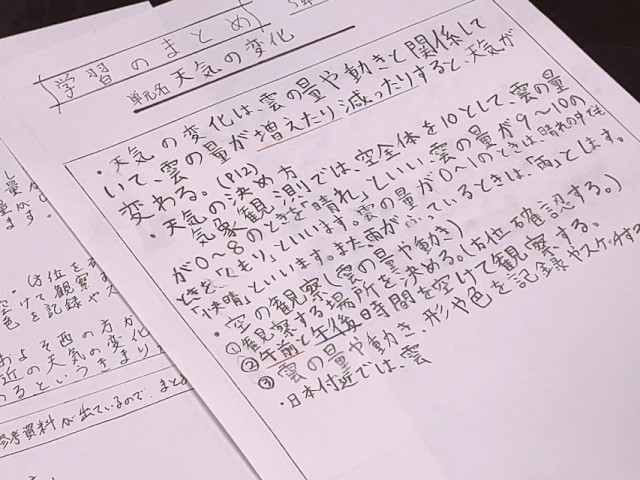 学習のまとめ
単元名 天気の変化
・天気の変化は、雲の量や動きと関係して
いて、雲の量が増えたり減ったりすると、天気が
変わる。(P12)
・天気の決め方
気象観測では、空全体を10として、雲の量
が0〜8のときを「晴れ」といい、雲の量が9〜10の
ときを「くもり」といいます。雲の量が0〜1のときは、晴れの中でも
「快晴」といいます。また雨がふっているときは、「雨」とします。
・空の観察(雲の量や動き)
①観察する場所を決める。(方位確認する。)
②午前と午後日時間を空けて観察する。
③雲の量や動き、形や色を記録やスケッチする
・日本付近では、雲
量が
ます。
。(方位を
空けて観察す
色を記録や
およそ西の方か
近の天気の変化
るというきまり
参考資料が出ているので、まとめ